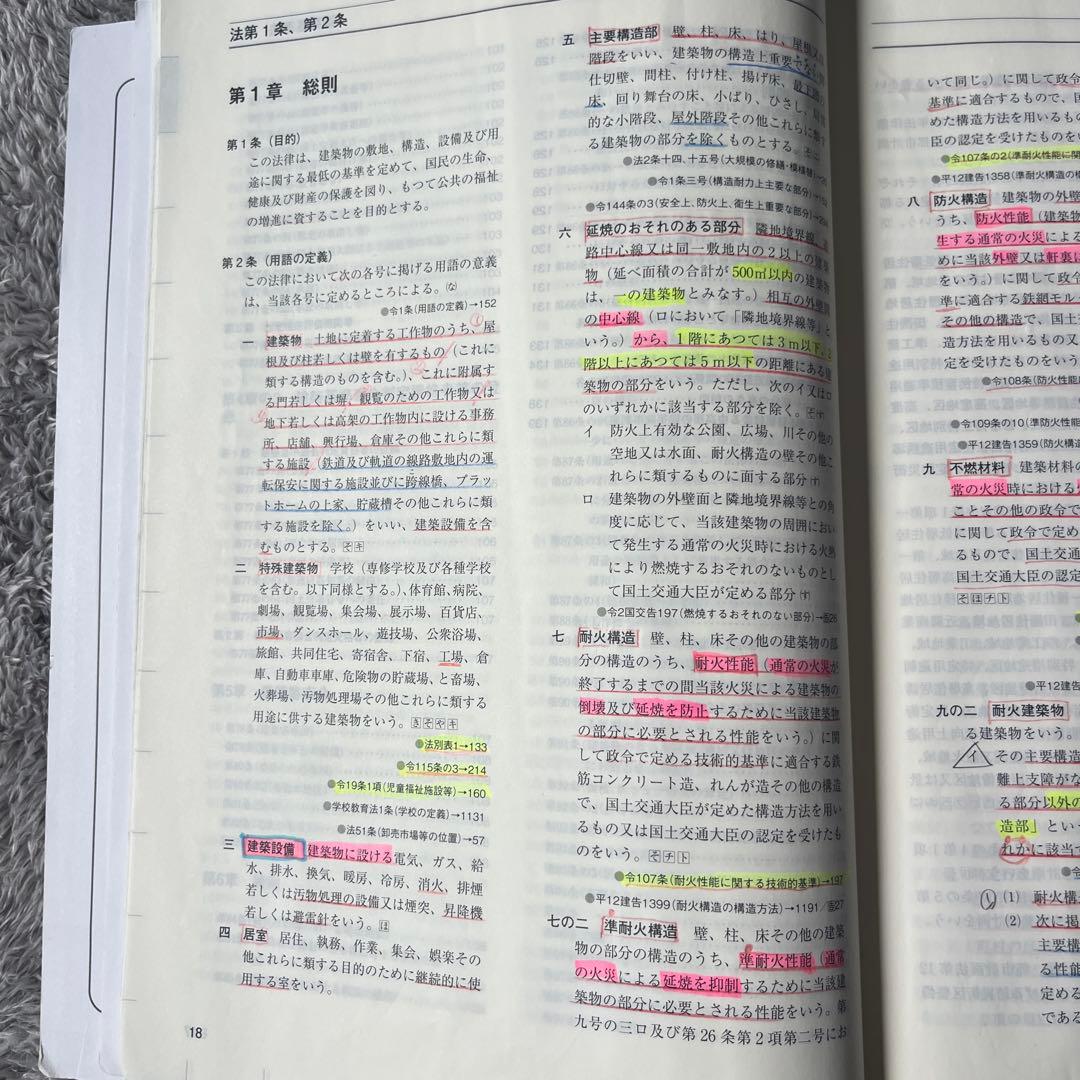 法第1条、第2条
第1章 総則
第1条(目的)
この法律は、建築物の敷地、構造、設備及び用
途に関する最低の基準を定めて、国民の生命、
健康及び財産の保護を図り、もつて公共の福祉
の増進に資することを目的とする。
第2条(用語の定義)
この法律において次の各号に掲げる用語の意義
は、当該各号に定めるところによる。(な)
●令1条(用語の定義)→152
一 建築物 土地に定着する工作物のうち、屋
根及び柱若しくは壁を有するもの(これに
類する構造のものを含む。)、これに附属す
る門若しくは塀、観覧のための工作物又は
地下若しくは高架の工作物内に設ける事務
所、店舗、興行場、倉庫その他これらに類
する施設(鉄道及び軌道の線路敷地内の運
転保安に関する施設並びに跨線橋、プラッ
トホームの上家、貯蔵槽その他これらに類
する施設を除く。)をいい、建築設備を含
むものとする。そキ
二 特殊建築物 学校(専修学校及び各種学校
を含む。以下同様とする。)、体育館、病院、
劇場、観覧場、集会場、展示場、百貨店、
市場、ダンスホール、遊技場、公衆浴場、
旅館、共同住宅、寄宿舎、下宿、工場、倉
庫、自動車車庫、危険物の貯蔵場、と畜場、
火葬場、汚物処理場その他これらに類する
用途に供する建築物をいう。きそやキ
●法別表1→133
●令115条の3→214
●令19条1項(児童福祉施設等)→160
●学校教育法1条(学校の定義)→1131
●法51条(卸売市場等の位置)→57
三 建築設備 建築物に設ける電気、ガス、給
水、排水、換気、暖房、冷房、消火、排煙
若しくは汚物処理の設備又は煙突、昇降機
若しくは避雷針をいう。ほ
四 居室 居住、執務、作業、集会、娯楽その
他これらに類する目的のために継続的に使
用する室をいう。
18
五 主要構造部 壁、柱、床、はり、屋根又
階段をいい、建築物の構造上重要でな
仕切壁、間柱、付け柱、揚げ床、最下
床、回り舞台の床、小ばり、ひさし、
的な小階段、屋外階段その他これらに類
る建築物の部分を除くものとする。
●法2条十四、十五号(大規模の修繕・模様替)
●令1条三号(構造耐力上主要な部分)
●令144条の3(安全上、防火上、衛生上重要な部分)
六 延焼のおそれのある部分 隣地境界線、
路中心線又は同一敷地内の2以上の建築
物(延べ面積の合計が500㎡以内の建築物
は、一の建築物とみなす。)相互の外壁間
の中心線(ロにおいて「隣地境界線等」と
いう。)から、1階にあつては3m以下、2
階以上にあつては5m以下の距離にある建
築物の部分をいう。ただし、次のイ又はロ
のいずれかに該当する部分を除く。そす
イ 防火上有効な公園、広場、川その他の
空地又は水面、耐火構造の壁その他こ
れらに類するものに面する部分
ロ 建築物の外壁面と隣地境界線等との角
度に応じて、当該建築物の周囲におい
て発生する通常の火災時における火熱
により燃焼するおそれのないものとし
て国土交通大臣が定める部分す
●令2国交告197(燃焼するおそれのない部分)→告26
七 耐火構造 壁、柱、床その他の建築物の部
分の構造のうち、耐火性能(通常の火災が
終了するまでの間当該火災による建築物の
倒壊及び延焼を防止するために当該建築物
の部分に必要とされる性能をいう。)に関
して政令で定める技術的基準に適合する鉄
筋コンクリート造、れんが造その他の構造
で、国土交通大臣が定めた構造方法を用い
るもの又は国土交通大臣の認定を受けたも
のをいう。そチト
●令107条(耐火性能に関する技術的基準)→197
●平12建告1399(耐火構造の構造方法)→1191/告27
七の二 準耐火構造 壁、柱、床その他の建築
物の部分の構造のうち、準耐火性能(通常
の火災による延焼を抑制するために当該建
築物の部分に必要とされる性能をいう。第
九号の三ロ及び第26条第2項第二号にお
いて同じ。)に関して政令
基準に適合するもので、国
めた構造方法を用いるもの
臣の認定を受けたものを
●令107条の2(準耐火性能に関
●平12建告1358(準耐火構造の構
八 防火構造 建築物の外壁
うち、防火性能(建築物
生する通常の火災による
めに当該外壁又は軒裏に
をいう。)に関して政令で
準に適合する鉄網モル
その他の構造で、国土
造方法を用いるもの又
定を受けたものをいう
●令108条(防火性能
●令109条の10(準防火性能
●平12建告1359(防火構造
九 不燃材料 建築材料の
常の火災時における
ことその他の政令で
に関して政令で定め
るもので、国土交通
国土交通大臣の認定
そほチト
●平12建告
九の二 耐火建築物
る建築物をいう。
イ その主要構造
難上支障がな
る部分以外の
造部」とい
れかに該当
(1) 耐火構
(2) 次に掲
主要構
る性能
定める
である